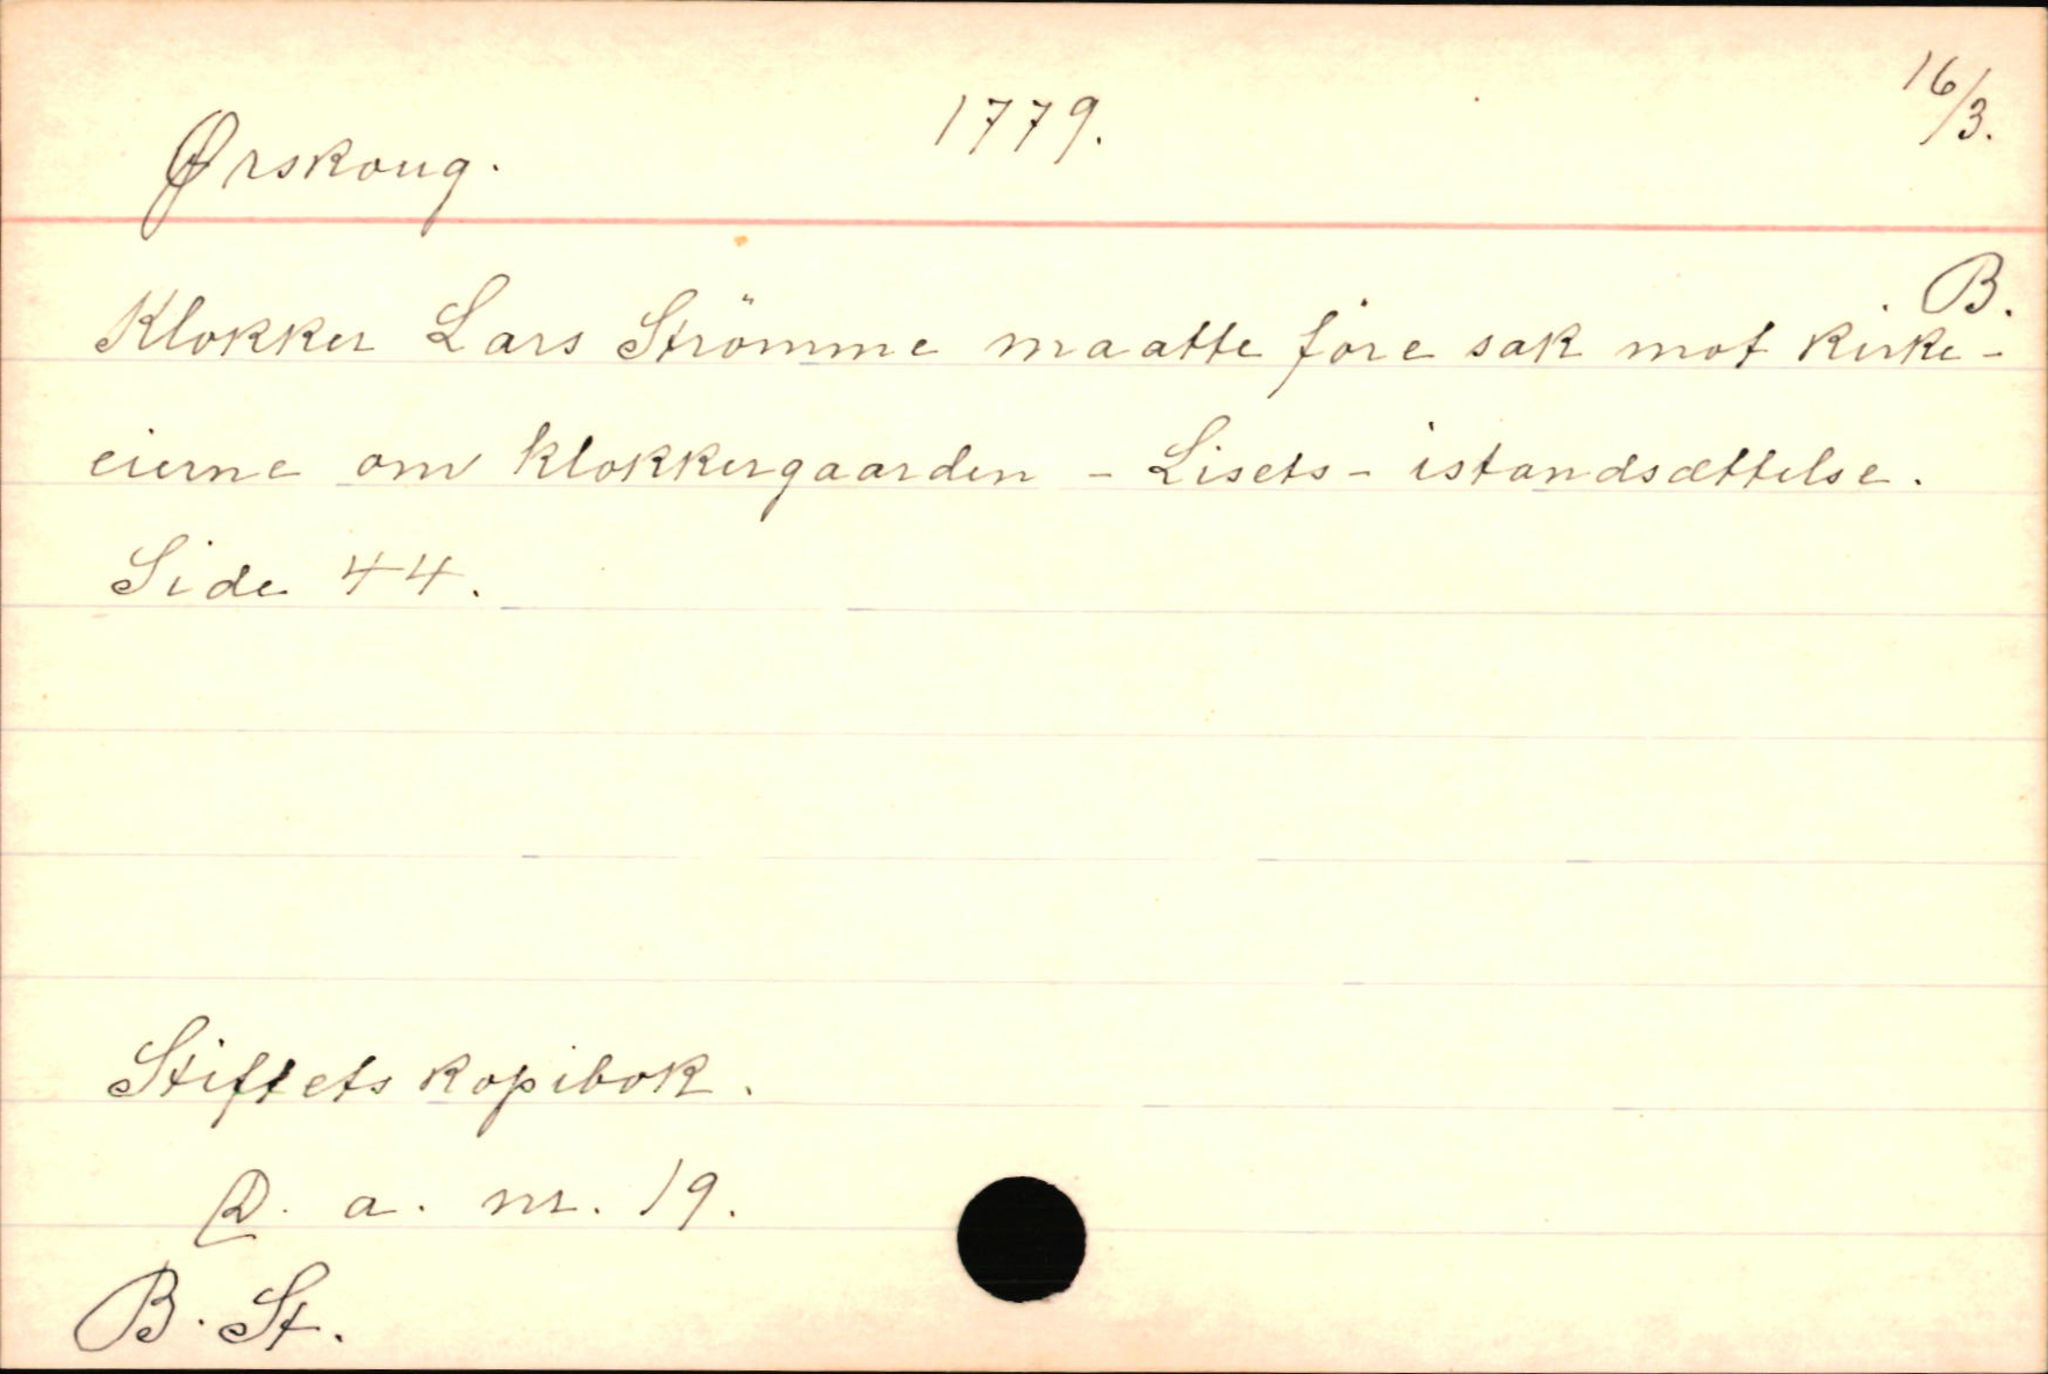 Ørskoug. 1779. 16/3.
B.
Klokker Lars Strömme maatte före sak mot kirke-
eierne om klokkergaarden - Lisets - istandsættelse.
Side 44.
Stiftets kopibok.
a. nr. 19.
B. St.